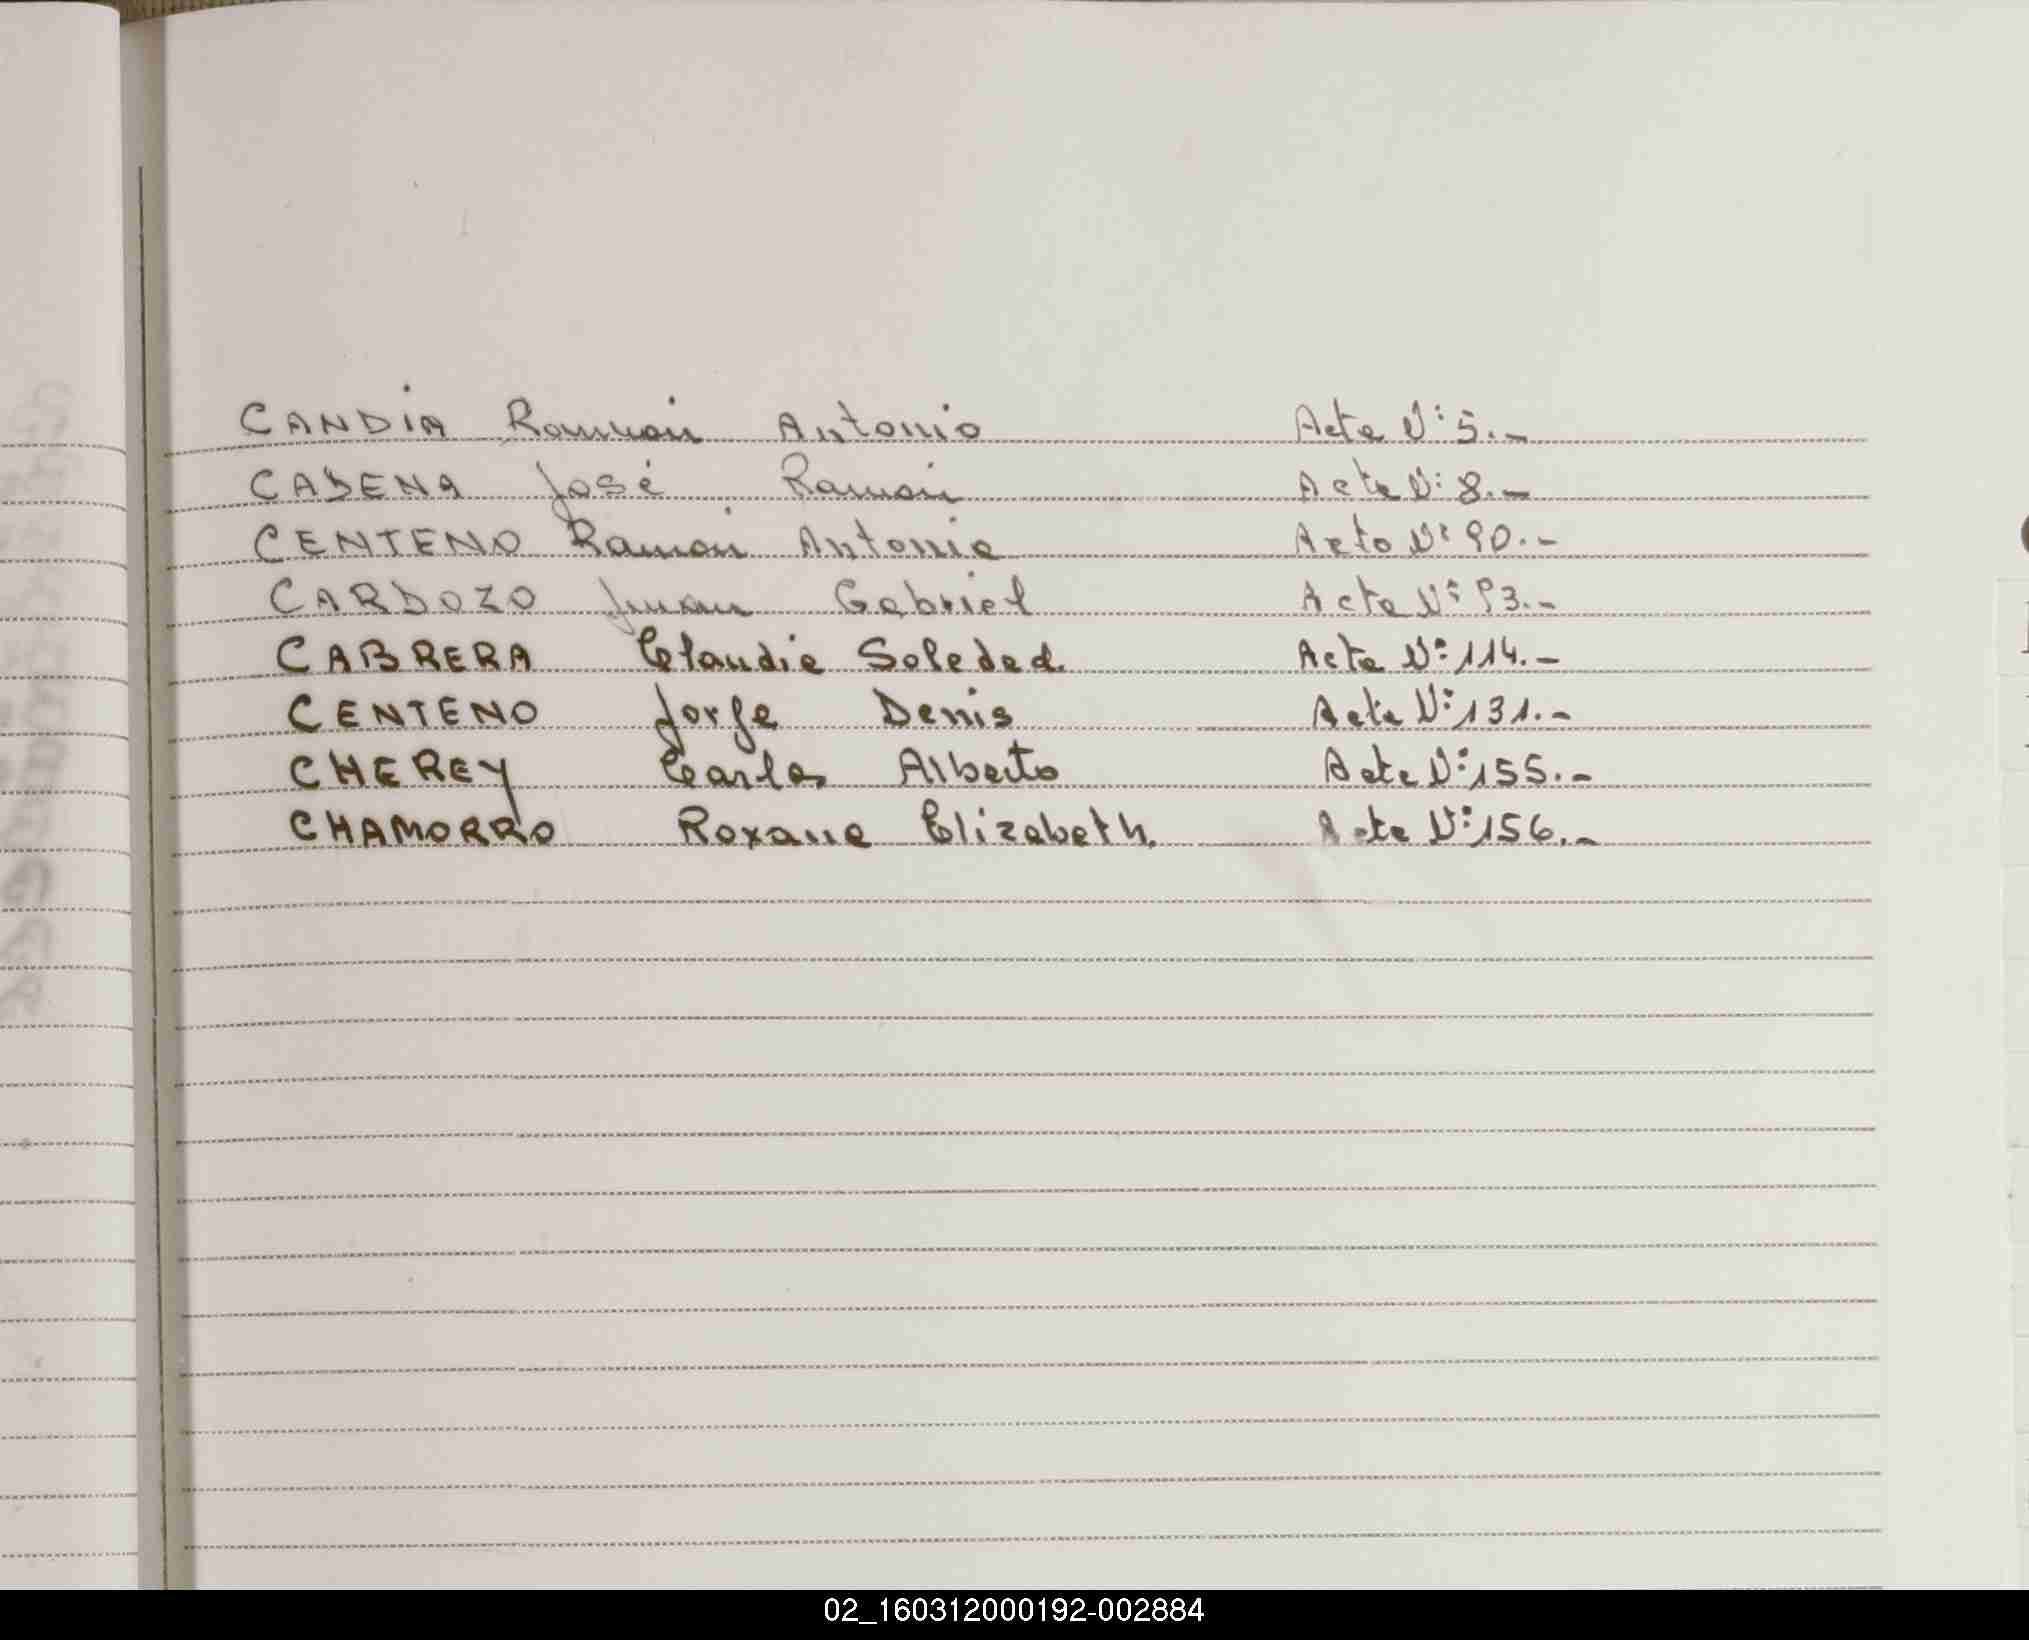 CANDIA Ramón Antonio Acta Nº 5.-
CADENA José Ramón Acta Nº 8.-
CENTENO Ramón Antonio Acta Nº 90.-
CARDOZO Juan Gabriel Acta Nº 93.-
CABRERA Claudia Soledad. Acta Nº 114.-
CENTENO Jorge Denis Acta Nº 131.-
CHEREY Carlos Alberto Acta Nº 155.-
CHAMORRO Roxana Elizabeth. Acta Nº 156.-
02_160312000192-002884